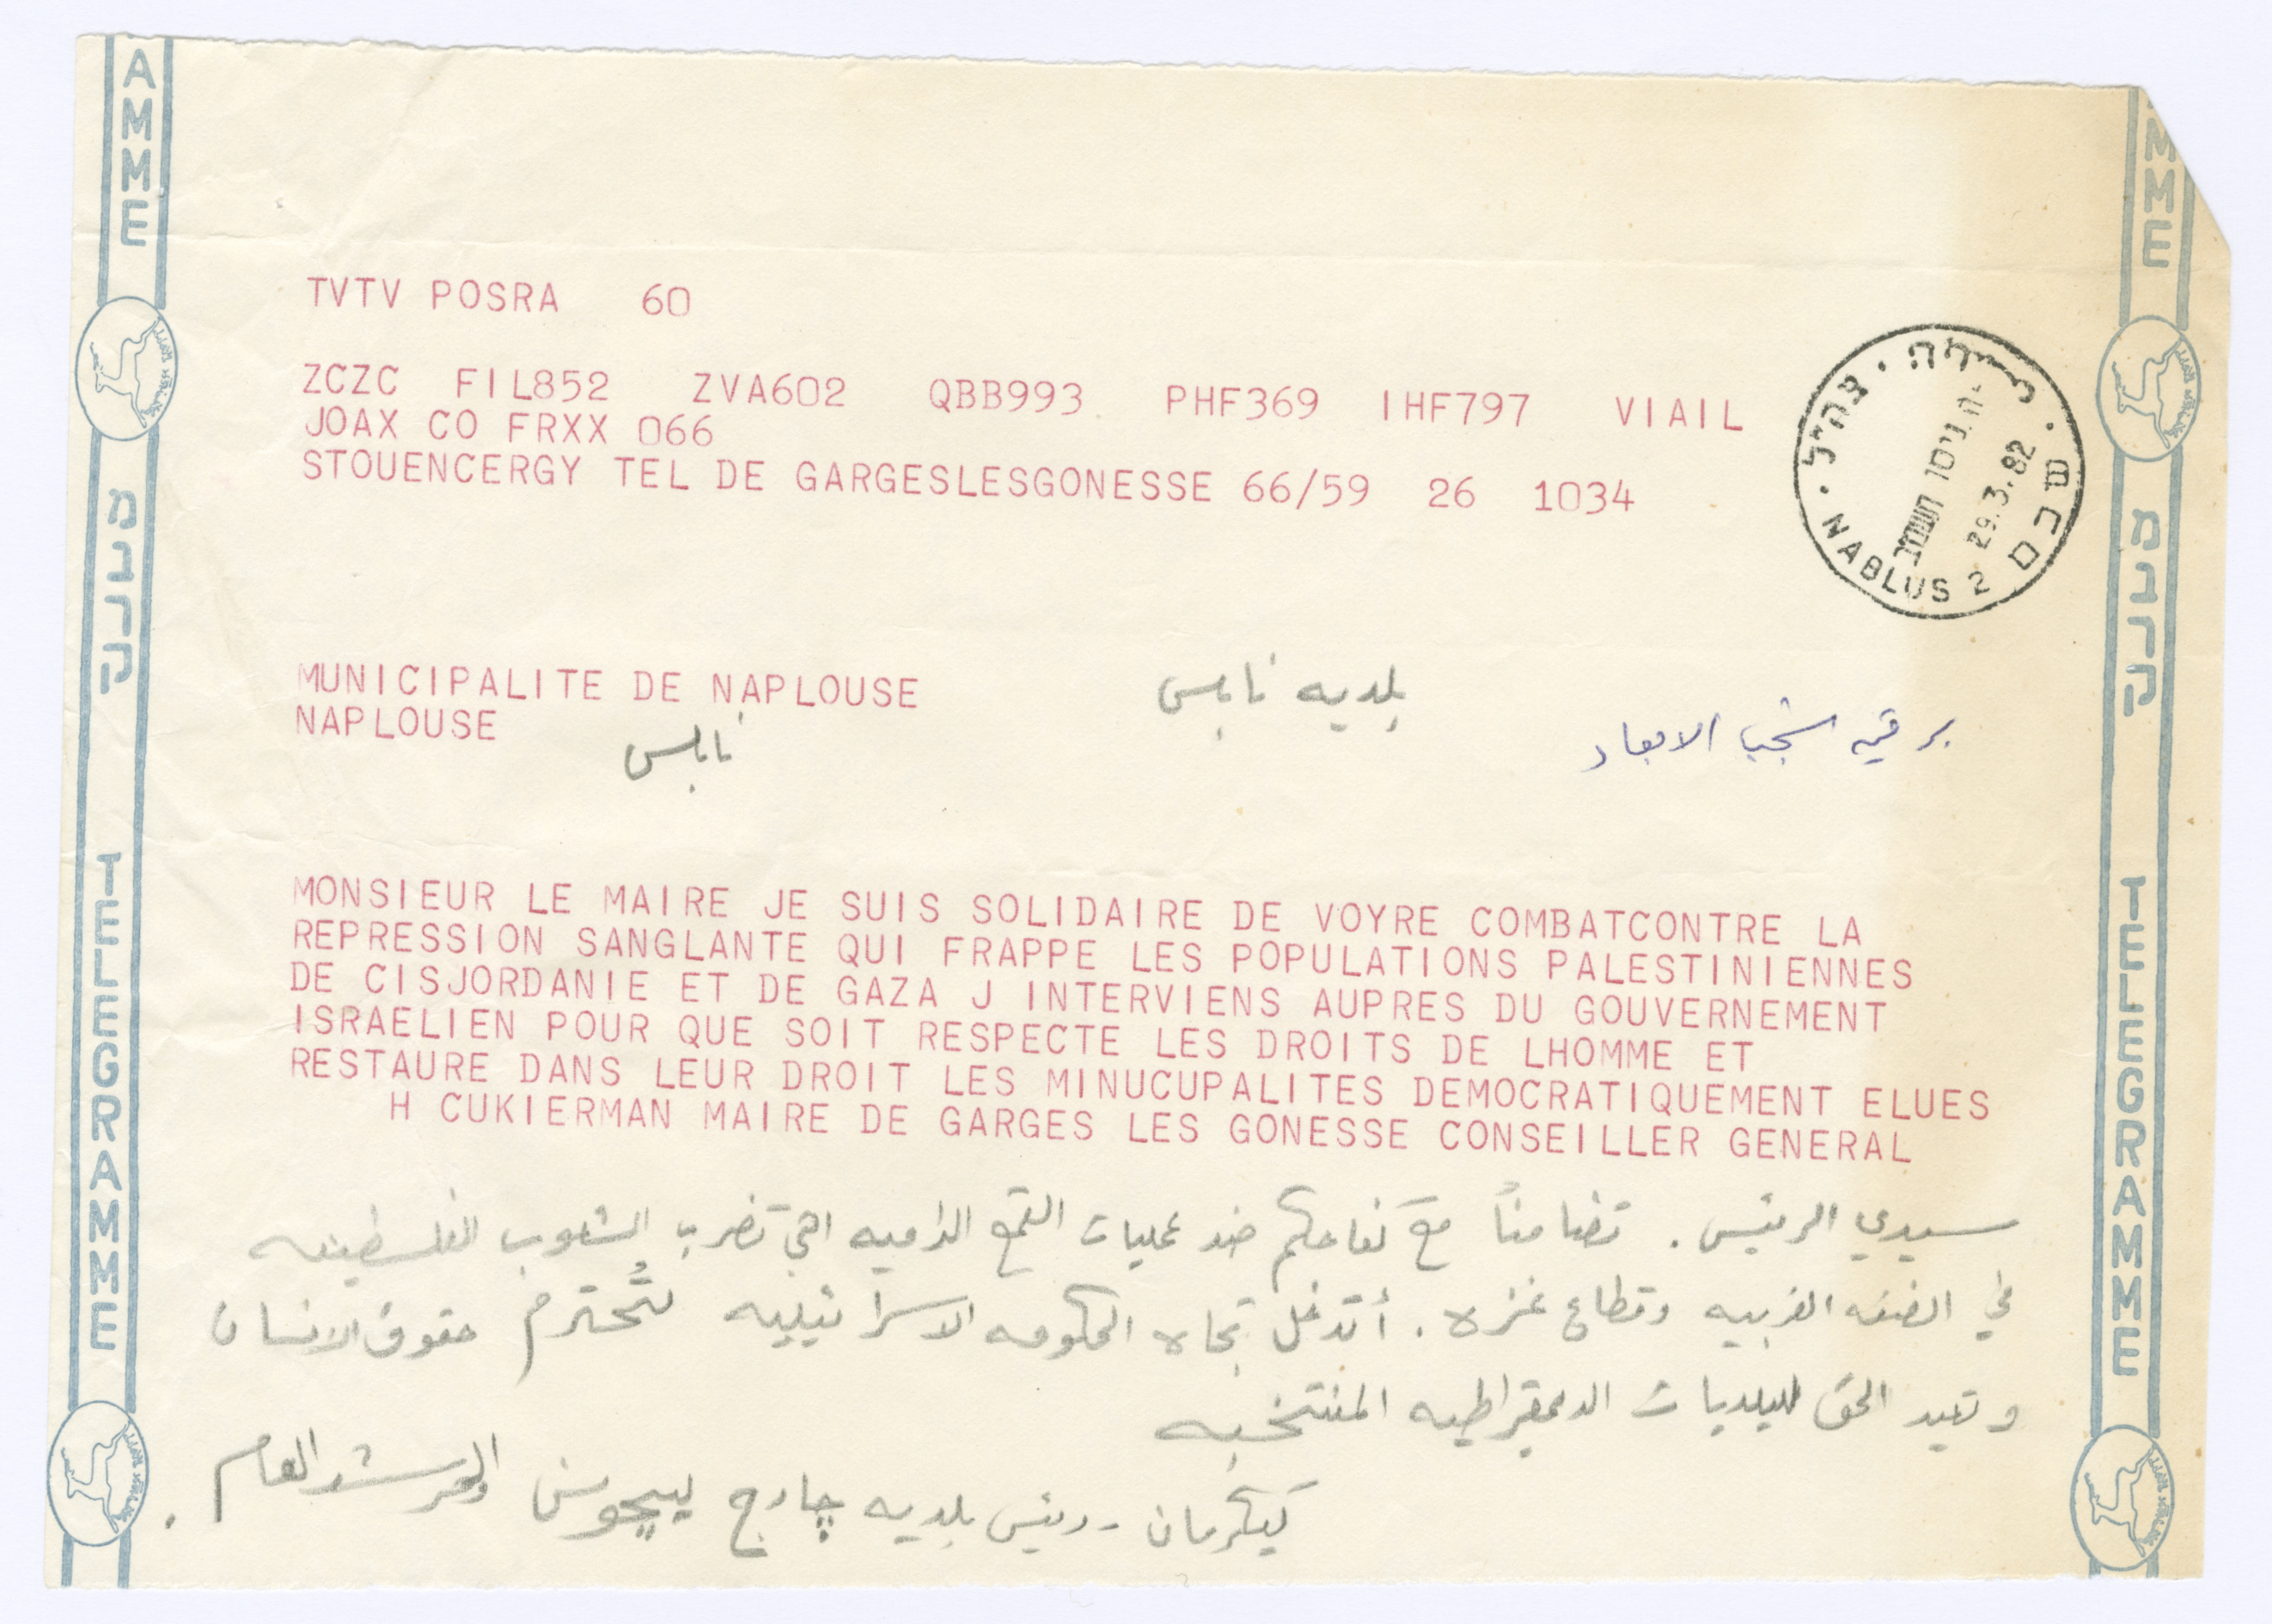 AMME
מברק
TELEGRAMME
MME
מברק
TELEGRAMME
TVTV POSRA 60
ZCZC FIL852 ZVA602 QBB993 PHF369 IHF797 VIAIL
JOAX CO FRXX 066
STOUENCERGY TEL DE GARGESLESGONESSE 66/59 26 1034
צה"ל
שכם
NABLUS 2
29.3.82
MUNICIPALITE DE NAPLOUSE
NAPLOUSE
بلديه نابلس
نابلس
برقيه الابعاد
MONSIEUR LE MAIRE JE SUIS SOLIDAIRE DE VOYRE COMBATCONTRE LA
REPRESSION SANGLANTE QUI FRAPPE LES POPULATIONS PALESTINIENNES
DE CISJORDANIE ET DE GAZA J INTERVIENS AUPRES DU GOUVERNEMENT
ISRAELIEN POUR QUE SOIT RESPECTE LES DROITS DE LHOMME ET
RESTAURE DANS LEUR DROIT LES MINUCUPALITES DEMOCRATIQUEMENT ELUES
H CUKIERMAN MAIRE DE GARGES LES GONESSE CONSEILLER GENERAL
سيدي الرئيس . تضامناً مع كفاحكم ضد عمليات القمع الداميه التي تضرب الشعوب الفلسطينيه
في الضفه الغربيه وقطاع غزه . أتدخل تجاه الحكومه الاسرائيليه لتُحترم حقوق الانسان
وتعيد الحق للبلديات الديمقراطيه المنتخبه
كيكرمان - رئيس بلديه چارج ليجونس والمرشد العام .